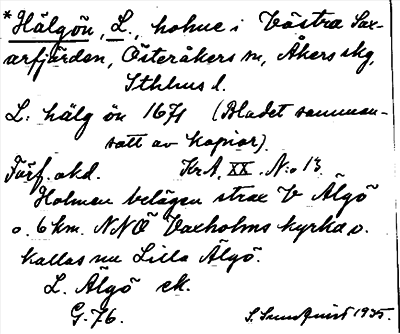 * Hälgön, L., holme i Västra Sax-
arfjärden, Österåkers sn, Åkers skg,
Sthlms l.
L. hälg ön 1671 (Bladet samman-
satt av kopior).
Förf. okd. KrA, XX. N:o 13.
Holmen belägen strax V Älgö
o. 6 km. NNÖ Vaxholms kyrka o.
kallas nu Lilla Älgö.
L. Älgö ek.
G. 76. S. Sundquist 1935.